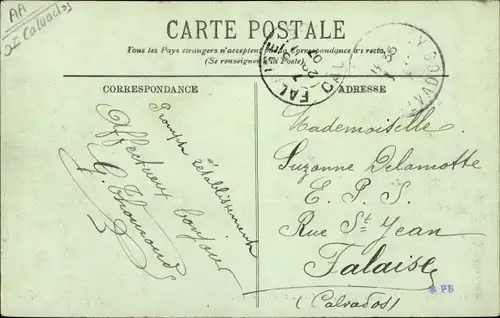 AA
CARTE POSTALE
Tous les Pays étrangers n'acceptent pas la Correspondance au recto.
(Se renseigner à la Poste).
CORRESPONDANCE
ADRESSE
Prompt rétablissement
Affectueux bonjour
G. Thomond
Mademoiselle
Suzanne Delamotte
E. P. S.
Rue St Jean
Falaise
(Calvados)
PB